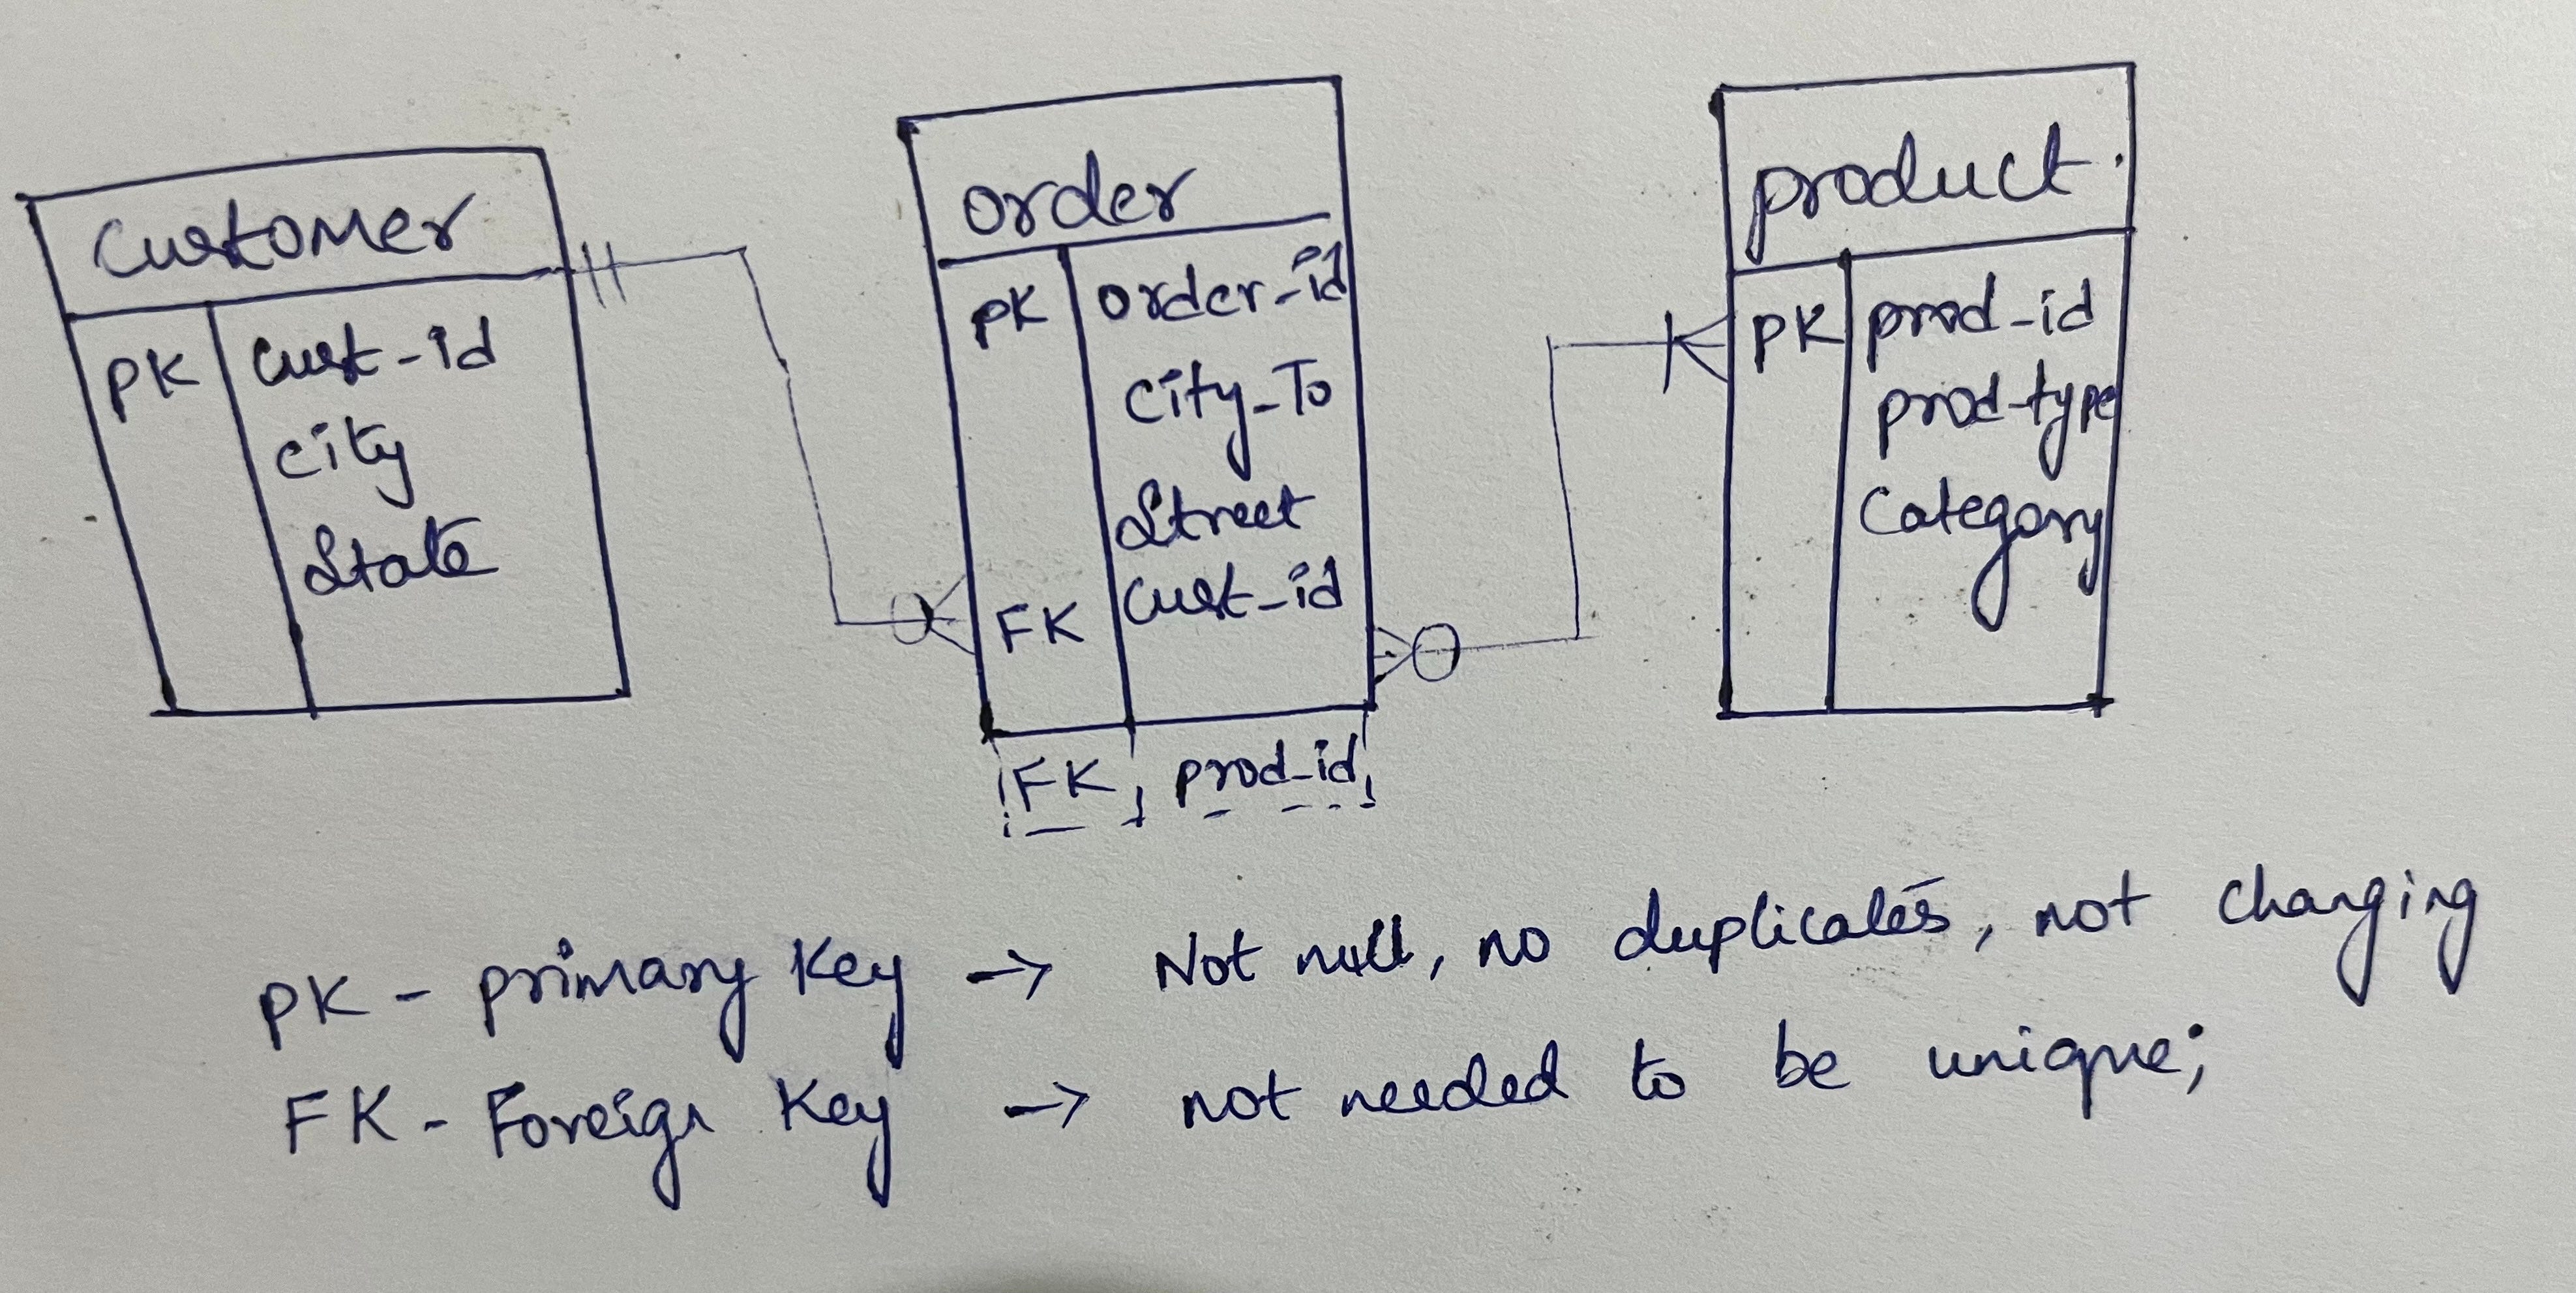 Customer
PK cust-id
city
State
order
PK order-id
city-To
Street
FK cust-id
FK prod-id
product.
PK prod-id
prod-type
Category
PK - primary Key → Not null, no duplicates, not changing
FK - Foreign Key → not needed to be unique;